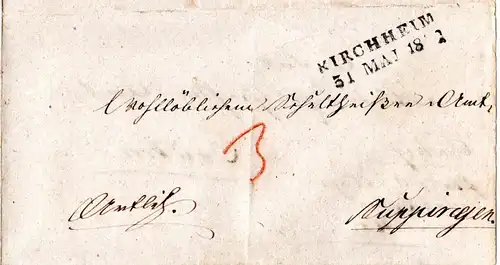 KIRCHHEIM
31 MAI 18
Wohllöblichem Schultheißen-Amt
3
Amtlich.
Suppingen.